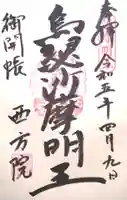 奉拝 令和五年四月九日
烏芻沙摩明王
御開帳
西方院